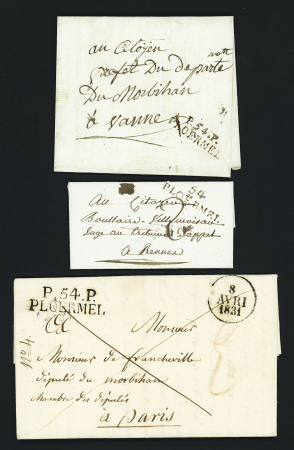 au Citoyen
prefet Du departe
ment
Du Morbihan
à vanne
P.54.P.
PLOERMEL
54
PLOERMEL
Au Citoyen
Boullaire-Villemoisan
Juge au tribunal d'appel
à Rennes
P.54.P.
PLOERMEL
8
AVRI
1831
Monsieur
Monsieur de francheville
député du morbihan
chambre des députés
à paris